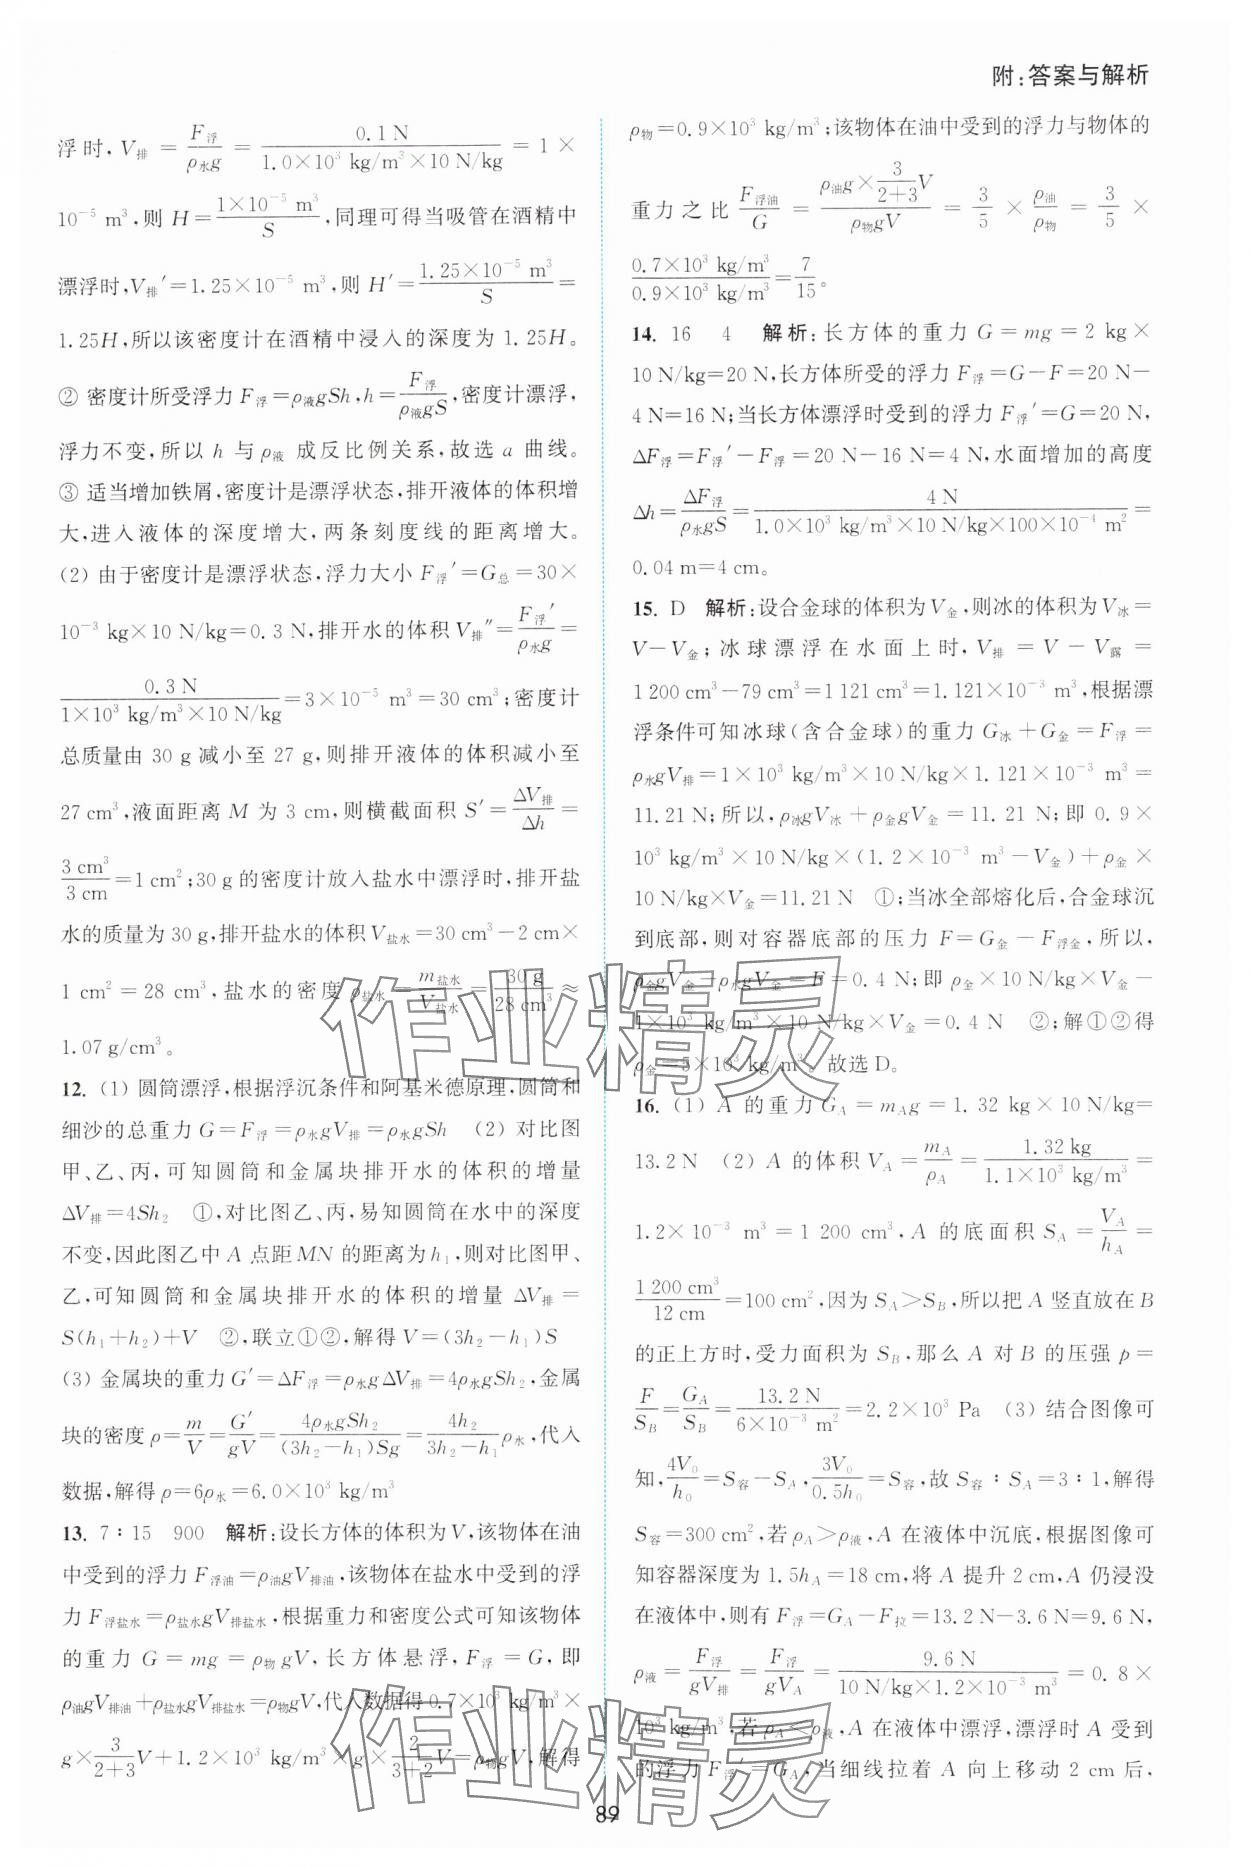 附:答案与解析
浮时,V排=F浮/ρ水g=0.1 N/(1.0×10³ kg/m³×10 N/kg)=1×
10⁻⁵ m³,则 H=(1×10⁻⁵ m³)/S,同理可得当吸管在酒精中
漂浮时,V排′=1.25×10⁻⁵ m³,则 H′=(1.25×10⁻⁵ m³)/S=
1.25H,所以该密度计在酒精中浸入的深度为 1.25H。
② 密度计所受浮力 F浮=ρ液gSh,h=F浮/ρ液gS,密度计漂浮,
浮力不变,所以 h 与 ρ液 成反比例关系,故选 a 曲线。
③ 适当增加铁屑,密度计是漂浮状态,排开液体的体积增
大,进入液体的深度增大,两条刻度线的距离增大。
(2) 由于密度计是漂浮状态,浮力大小 F浮′=G总=30×
10⁻³ kg×10 N/kg=0.3 N,排开水的体积 V排″=F浮′/ρ水g=
0.3 N/(1×10³ kg/m³×10 N/kg)=3×10⁻⁵ m³=30 cm³;密度计
总质量由 30 g 减小至 27 g,则排开液体的体积减小至
27 cm³,液面距离 M 为 3 cm,则横截面积 S′=ΔV排/Δh=
3 cm³/3 cm=1 cm²;30 g的密度计放入盐水中漂浮时,排开盐
水的质量为 30 g,排开盐水的体积 V盐水=30 cm³-2 cm×
1 cm²=28 cm³,盐水的密度 ρ盐水=m盐水/V盐水=30 g/28 cm³≈
1.07 g/cm³。
12. (1) 圆筒漂浮,根据浮沉条件和阿基米德原理,圆筒和
细沙的总重力 G=F浮=ρ水gV排=ρ水gSh (2) 对比图
甲、乙、丙,可知圆筒和金属块排开水的体积的增量
ΔV排=4Sh₂ ①,对比图乙、丙,易知圆筒在水中的深度
不变,因此图乙中 A 点距 MN 的距离为 h₁,则对比图甲、
乙,可知圆筒和金属块排开水的体积的增量 ΔV排=
S(h₁+h₂)+V ②,联立①②,解得 V=(3h₂-h₁)S
(3) 金属块的重力 G′=ΔF浮=ρ水gΔV排=4ρ水gSh₂,金属
块的密度 ρ=m/V=G′/gV=4ρ水gSh₂/(3h₂-h₁)Sg=4h₂/(3h₂-h₁)ρ水,代入
数据,解得 ρ=6ρ水=6.0×10³ kg/m³
13. 7∶15 900 解析:设长方体的体积为 V,该物体在油
中受到的浮力 F浮油=ρ油gV排油,该物体在盐水中受到的浮
力 F浮盐水=ρ盐水gV排盐水,根据重力和密度公式可知该物体
的重力 G=mg=ρ物gV,长方体悬浮,F浮=G,即
ρ油gV排油+ρ盐水gV排盐水=ρ物gV,代入数据得 0.7×10³ kg/m³×
g×3/(2+3)V+1.2×10³ kg/m³×g×2/(3+2)V=ρ物gV,解得
ρ物=0.9×10³ kg/m³;该物体在油中受到的浮力与物体的
重力之比 F浮油/G=(ρ油g×3/(2+3)V)/ρ物gV=3/5×ρ油/ρ物=3/5×
(0.7×10³ kg/m³)/(0.9×10³ kg/m³)=7/15。
14. 16 4 解析:长方体的重力 G=mg=2 kg×
10 N/kg=20 N,长方体所受的浮力 F浮=G-F=20 N-
4 N=16 N;当长方体漂浮时受到的浮力 F浮′=G=20 N,
ΔF浮=F浮′-F浮=20 N-16 N=4 N,水面增加的高度
Δh=ΔF浮/ρ水gS=4 N/(1.0×10³ kg/m³×10 N/kg×100×10⁻⁴ m²)=
0.04 m=4 cm。
15. D 解析:设合金球的体积为 V金,则冰的体积为 V冰=
V-V金;冰球漂浮在水面上时,V排=V-V露=
1 200 cm³-79 cm³=1 121 cm³=1.121×10⁻³ m³,根据漂
浮条件可知冰球(含合金球)的重力 G冰+G金=F浮=
ρ水gV排=1×10³ kg/m³×10 N/kg×1.121×10⁻³ m³=
11.21 N;所以,ρ冰gV冰+ρ金gV金=11.21 N;即 0.9×
10³ kg/m³×10 N/kg×(1.2×10⁻³ m³-V金)+ρ金×
10 N/kg×V金=11.21 N ①;当冰全部熔化后,合金球沉
到底部,则对容器底部的压力 F=G金-F浮金,所以,
ρ金gV金-ρ水gV金=F=0.4 N;即 ρ金×10 N/kg×V金-
1×10³ kg/m³×10 N/kg×V金=0.4 N ②;解①②得
ρ金=5×10³ kg/m³。故选 D。
16. (1) A 的重力 G_A=m_Ag=1.32 kg×10 N/kg=
13.2 N (2) A 的体积 V_A=m_A/ρ_A=1.32 kg/(1.1×10³ kg/m³)=
1.2×10⁻³ m³=1 200 cm³,A 的底面积 S_A=V_A/h_A=
1 200 cm³/12 cm=100 cm²,因为 S_A>S_B,所以把 A 竖直放在 B
的正上方时,受力面积为 S_B,那么 A 对 B 的压强 p=
F/S_B=G_A/S_B=13.2 N/(6×10⁻³ m²)=2.2×10³ Pa (3) 结合图像可
知,4V₀/h₀=S容-S_A,3V₀/0.5h₀=S容,故 S容∶S_A=3∶1,解得
S容=300 cm²,若 ρ_A>ρ液,A 在液体中沉底,根据图像可
知容器深度为 1.5h_A=18 cm,将 A 提升 2 cm,A 仍浸没
在液体中,则有 F浮=G_A-F拉=13.2 N-3.6 N=9.6 N,
ρ液=F浮/gV排=F浮/gV_A=9.6 N/(10 N/kg×1.2×10⁻³ m³)=0.8×
10³ kg/m³,若 ρ_A<ρ液,A 在液体中漂浮,漂浮时 A 受到
的浮力 F浮′=G_A,当细线拉着 A 向上移动 2 cm 后,
作业精灵
作业精灵
89